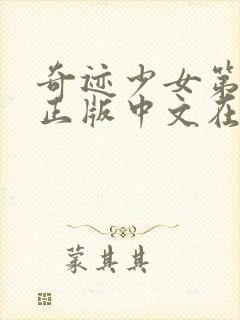 奇迹少女第
正版中文在
蒙其其